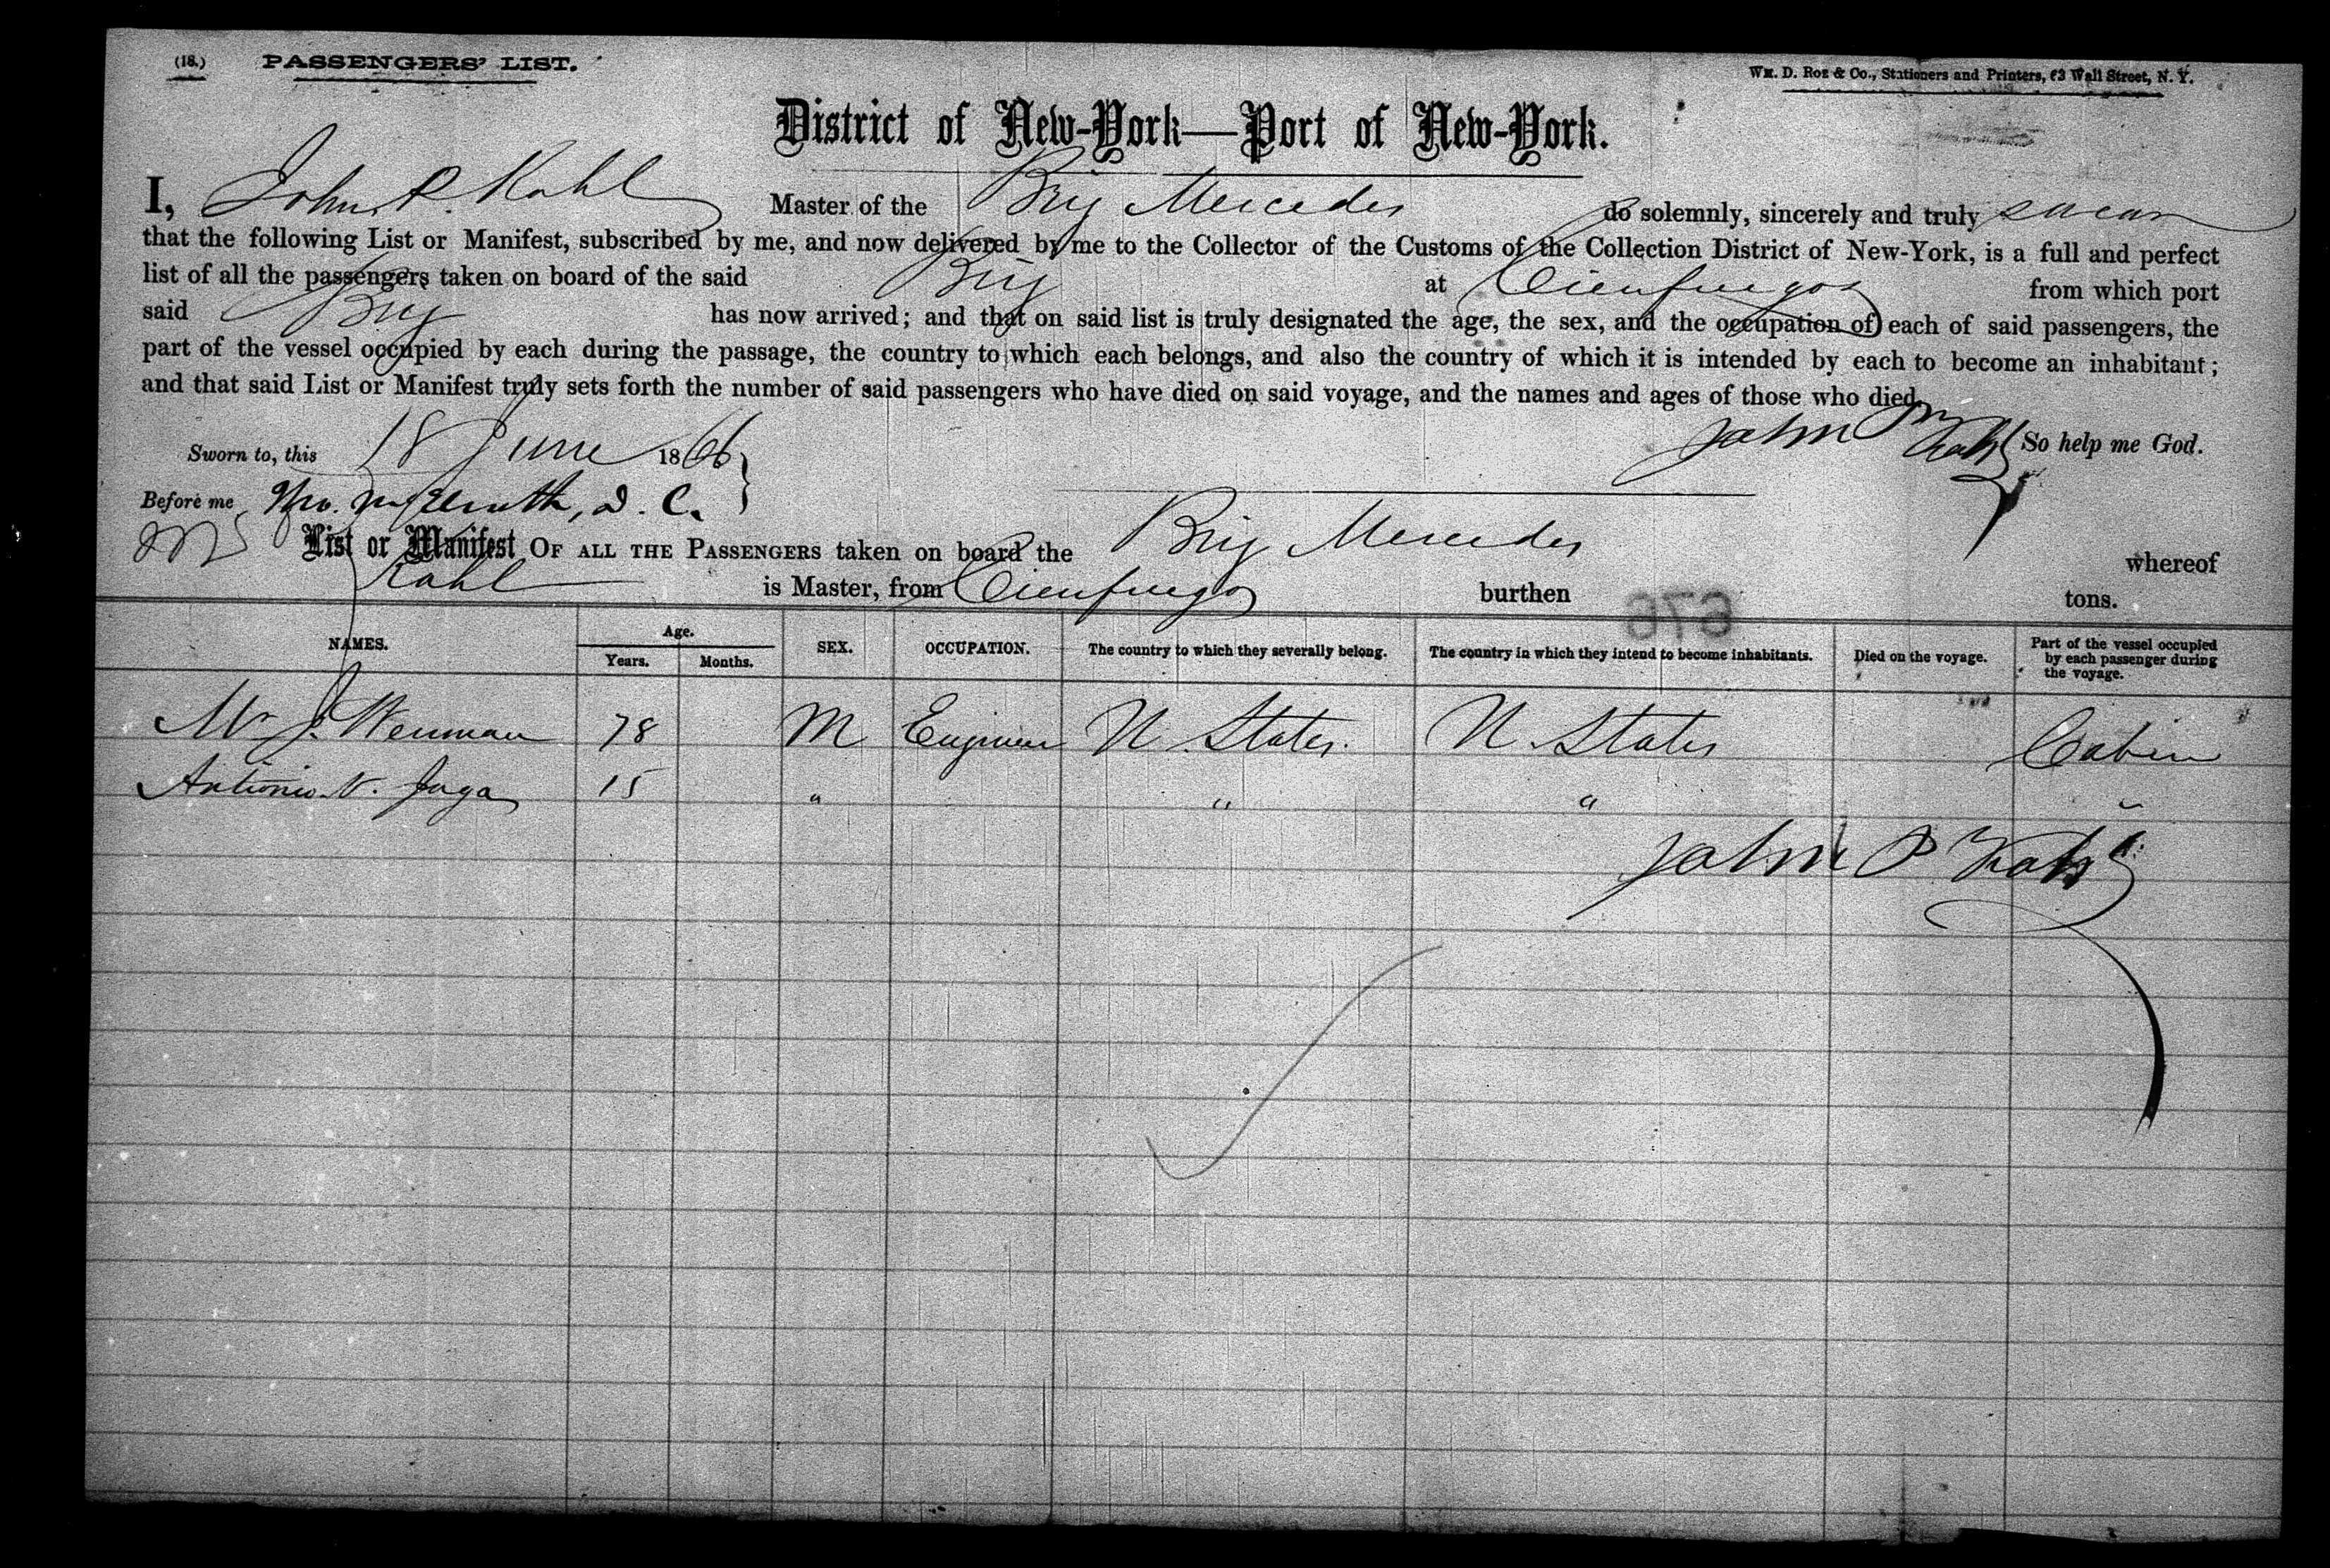 (18.) PASSENGERS' LIST.
Wm. D. Roe & Co., Stationers and Printers, 63 Wall Street, N. Y.
District of New-York—Port of New-York.
I, John P. Kahl Master of the Brig Mercedes do solemnly, sincerely and truly swear
that the following List or Manifest, subscribed by me, and now delivered by me to the Collector of the Customs of the Collection District of New-York, is a full and perfect
list of all the passengers taken on board of the said Brig at Cienfuegos from which port
said Brig has now arrived; and that on said list is truly designated the age, the sex, and the occupation of each of said passengers, the
part of the vessel occupied by each during the passage, the country to which each belongs, and also the country of which it is intended by each to become an inhabitant;
and that said List or Manifest truly sets forth the number of said passengers who have died on said voyage, and the names and ages of those who died.
Sworn to, this 18 June 1866 John P Kahl So help me God.
Before me D. C.
List or Manifest OF ALL THE PASSENGERS taken on board the Brig Mercedes whereof
Kahl is Master, from Cienfuegos burthen tons.
676
NAMES. Age. Years. Months. SEX. OCCUPATION. The country to which they severally belong. The country in which they intend to become inhabitants. Died on the voyage. Part of the vessel occupied by each passenger during the voyage.
Mr J. Wenman 78 M Engineer U. States. U. States Cabin
Antonio V. 15 " " " "
John P Kahl